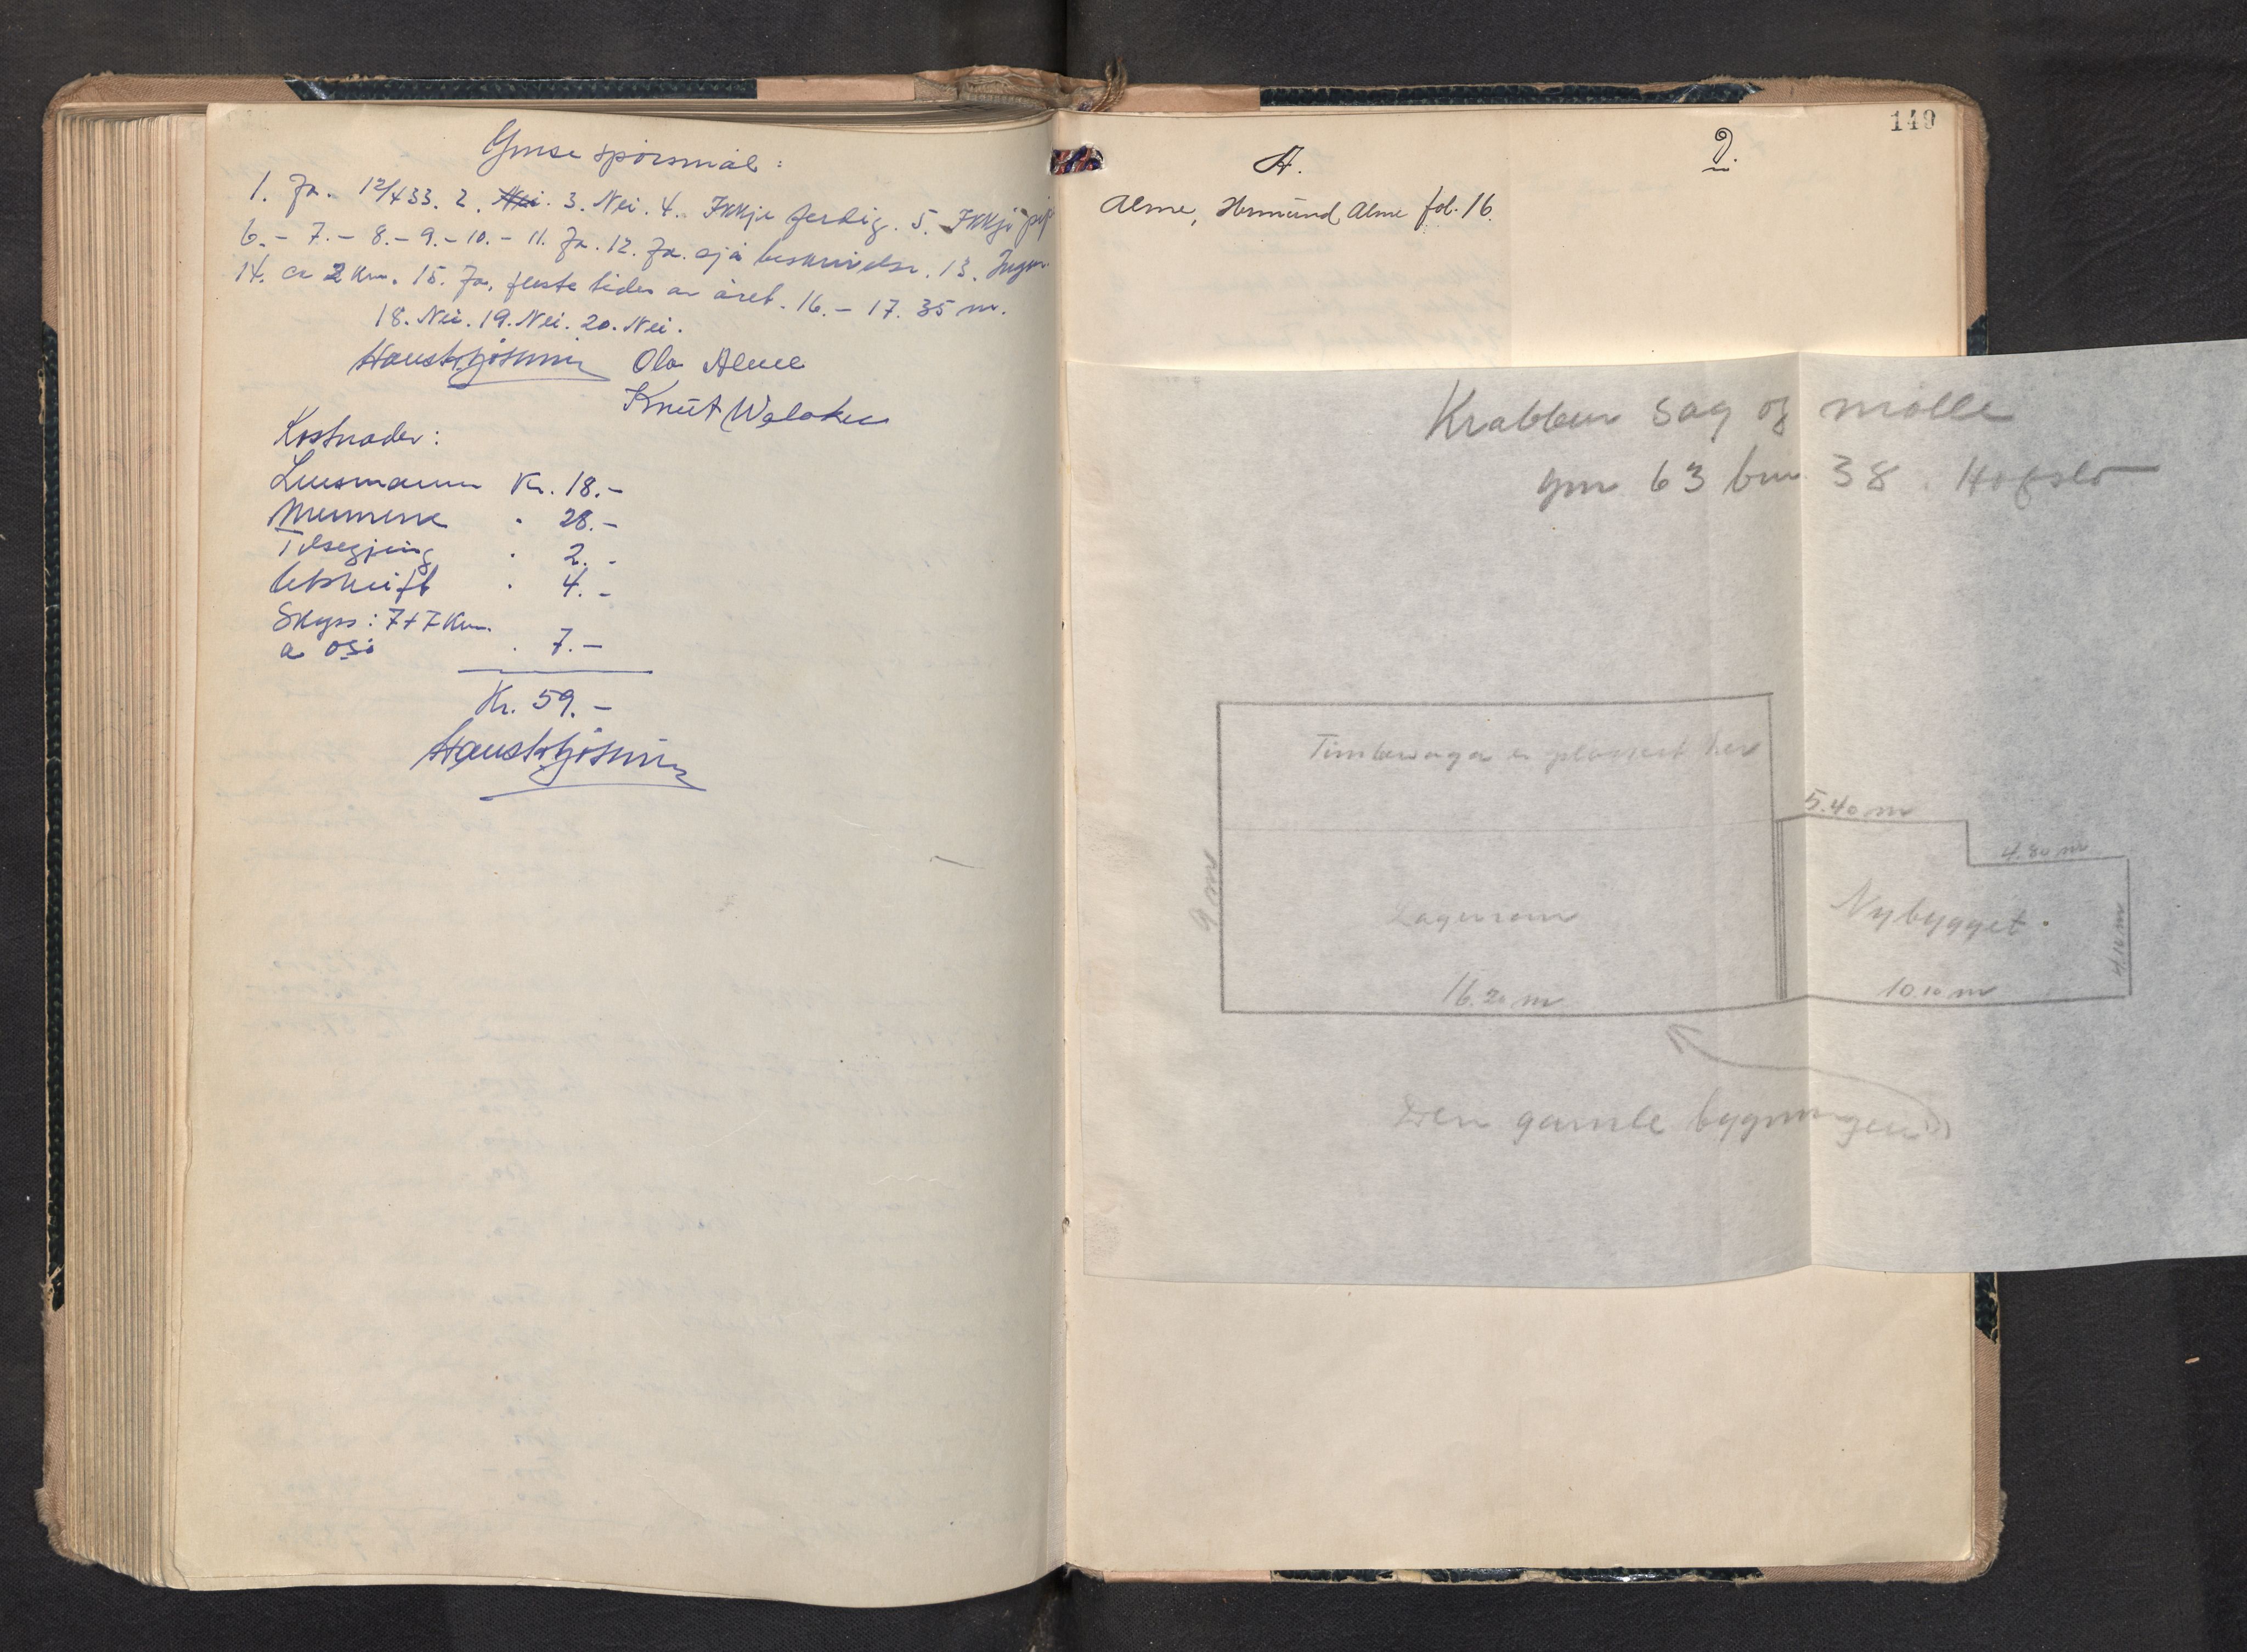 Ymse spörsmål:
1. Ja. 12/433. 2. Nei. 3. Nei. 4. Ikkje ferdig. 5. Ikkje
6.- 7.- 8.- 9.- 10.- 11. Ja. 12. Ja. sjå beskrivelse. 13. Ingen.
14. ca 2 km. 15. Ja, fleste tider av året. 16.- 17. 35 m.
18. Nei. 19. Nei. 20. Nei.
Ola Alme
Knut
Kostnader:
Lensmann Kr. 18.-
Mennene " 28.-
Tilsegjing " 2.-
Utskrift " 4.-
Skyss: 7+7 km.
a 0,50 " 7.-
Kr. 59.-
149
A.
Alme, Hermund, Alme fol. 16.
Krabben sag og mølle
gnr 63 bnr 38. Hafslo
Timbersaga er plassert her
5.40 m
4.80 m
9 m
Lagerrom
Nybygget.
4.10 m
16.20 m
10.10 m
Den gamle bygningen